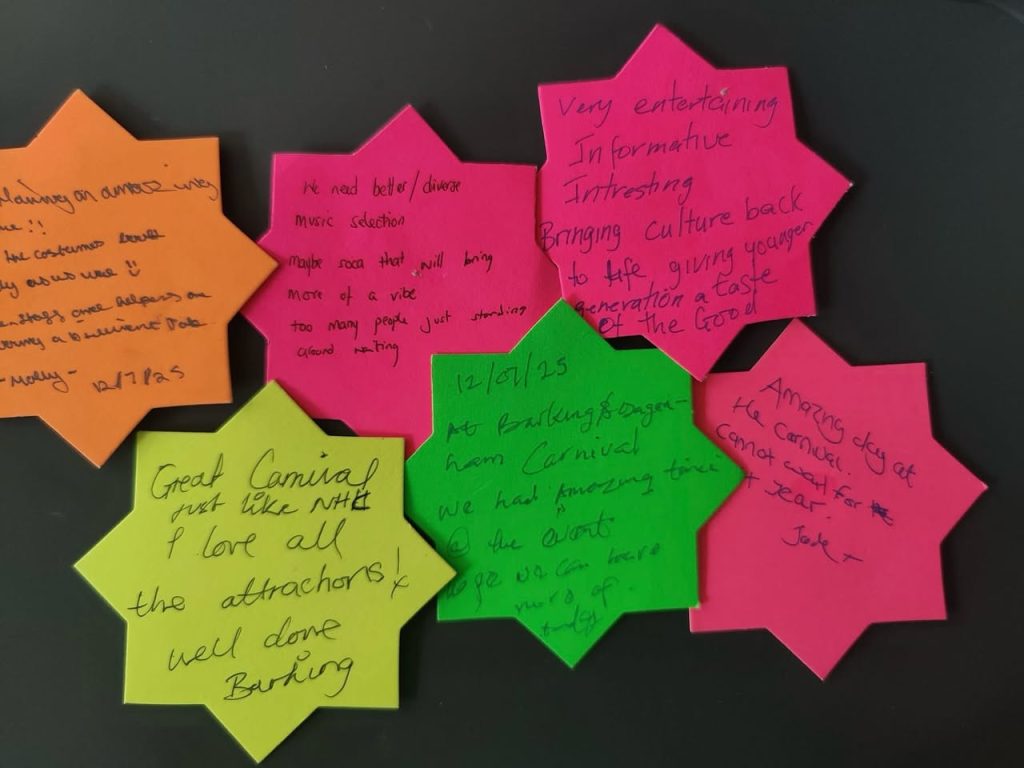 Having an amazing
!!
the costumes
as we were
helpers on
a brilliant
-Molly- 12/7/25
We need better/diverse
music selection
maybe soca that will bring
more of a vibe
too many people just standing
around waiting
Very entertaining
Informative
Intresting
Bringing culture back
to life giving younger
generation a taste
of the Good
Great Carnival
just like NHC
I love all
the attractions! x
well done
Barking
12/07/25
At Barking & Dagen-
ham Carnival
we had Amazing time
@ the event
hope we can have
more of
today
Amazing day at
the Carnival.
cannot wait for
year.
Jade x